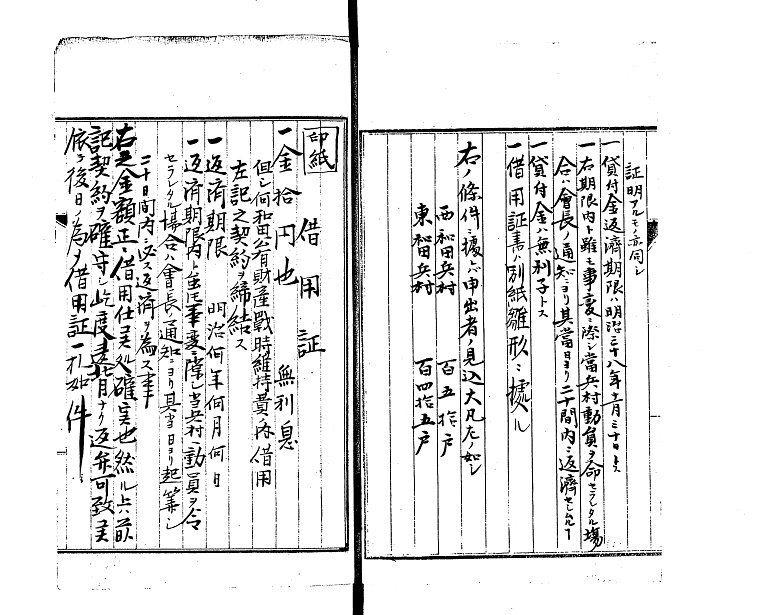 証明アルモノ亦同シ
一貸付金返済期限ハ明治三十八年十一月三十日トス
一右期限内ト雖モ事変ニ際シ當兵村動員ヲ命セラレタル場
合ハ會長ノ通知ニヨリ其當日ヨリ二十間内ニ返濟セシムルコト
一貸付金ハ無利子トス
一借用証書ハ別紙雛形ニ據ル
右ノ條件ニ據リ申出者ノ見込大凡左ノ如シ
西和田兵村 百五拾戸
東和田兵村 百四拾五戸
印紙
借用証
一金拾円也 無利息
但シ何和田公有財産戰時維持費ノ内借用
左記之契約ヲ締結ス
一返済期限 明治何年何月何日
一返済期限内ト雖モ事変ニ際シ当兵村ニ動員ヲ令
セラレタル場合ハ會長ノ通知ニヨリ其当日ヨリ起算シ
二十日間内ニ必ス返済ヲ為ス事
右之金額正ニ借用仕候処確実也然ル上ハ前
記契約ヲ確守シ屹度月ナリ返弁可致候
依テ後日ノ為メ借用証一札如件